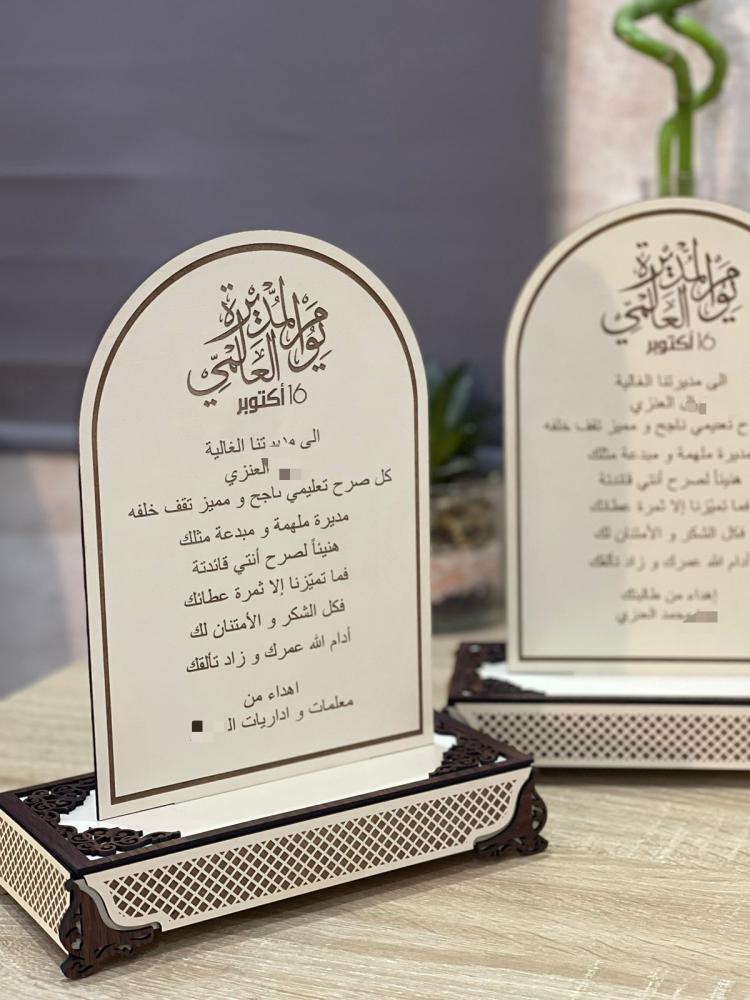 يوم المديرة العالمي
16 أكتوبر
الى مديرتنا الغالية
العنزي
كل صرح تعليمي ناجح و مميز تقف خلفه
مديرة ملهمة و مبدعة مثلك
هنيئاً لصرح أنتي قائدتة
فما تميّزنا إلا ثمرة عطائك
فكل الشكر و الأمتنان لك
أدام الله عمرك و زاد تألقك
اهداء من
معلمات و اداريات
يوم المديرة العالمي
16 أكتوبر
الى مديرتنا الغالية
العنزي
تعليمي ناجح و مميز تقف خلفه
مديرة ملهمة و مبدعة مثلك
هنيئاً لصرح أنتي قائدتة
فما تميّزنا إلا ثمرة عطائك
فكل الشكر و الأمتنان لك
أدام الله عمرك و زاد تألقك
إهداء من طالبتك
محمد العنزي